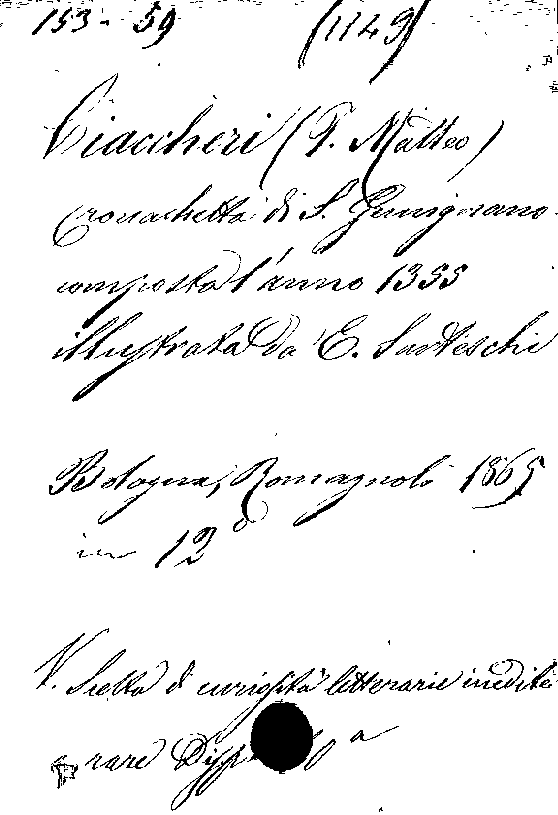 153 - 59 (1149)
Ciaccheri (F. Matteo)
Cronachetta di S. Gemignano
composta l'anno 1355
illustrata da E. Sarteschi
Bologna, Romagnoli 1865
in 12º
V. Scelta di curiosità letterarie inedite
o rare Disp